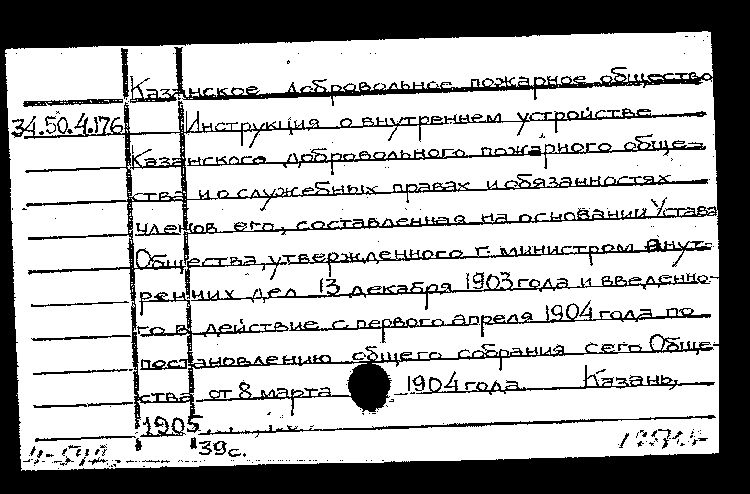 Казанское добровольное пожарное общество
34.50.4.176 Инструкция о внутреннем устройстве
Казанского добровольного пожарного обще-
ства и о служебных правах и обязанностях
членов его, составленная на основании Устава
Общества, утвержденного г. министром внут-
ренних дел 13 декабря 1903 года и введенно-
го в действие с первого апреля 1904 года по
постановлению общего собрания сего Обще-
ства от 8 марта 1904 года. Казань,
1905.
39 с.